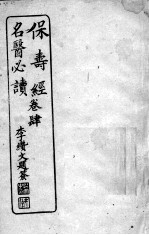 保壽經卷肆
名醫必讀
李繽文題簽